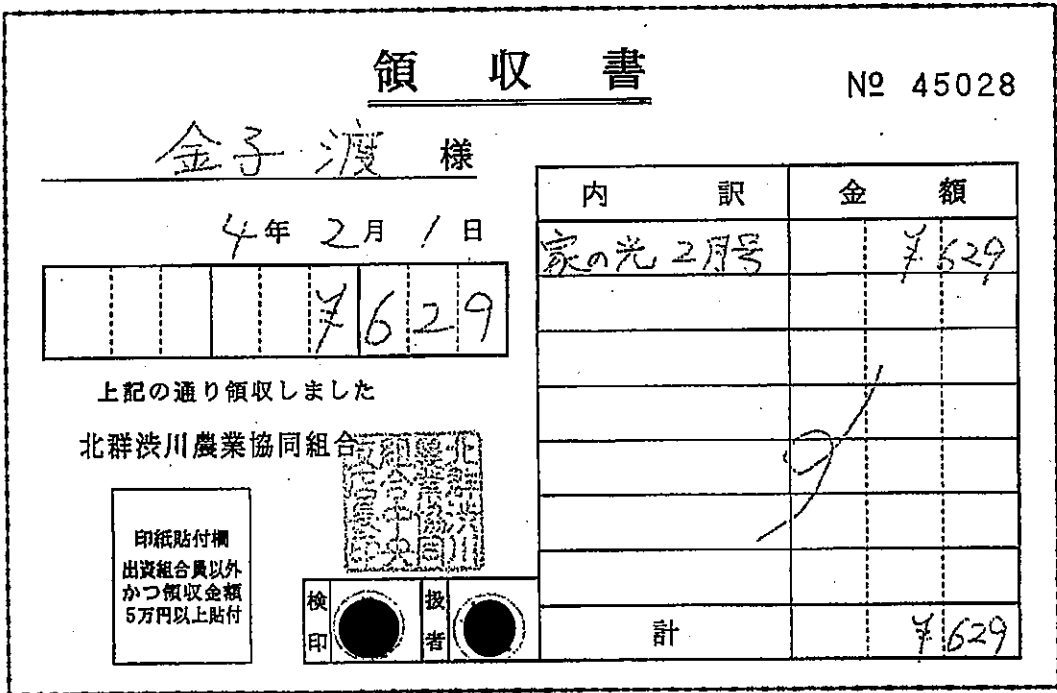 領収書
№ 45028
金子 渡 様
4年 2月 1日
¥629
上記の通り領収しました
北群渋川農業協同組合
北群渋川
農業協同
組合中央
支店長印
印紙貼付欄
出資組合員以外
かつ領収金額
5万円以上貼付
検印
扱者
内訳 金額
家の光 2月号 ¥629
計 ¥629